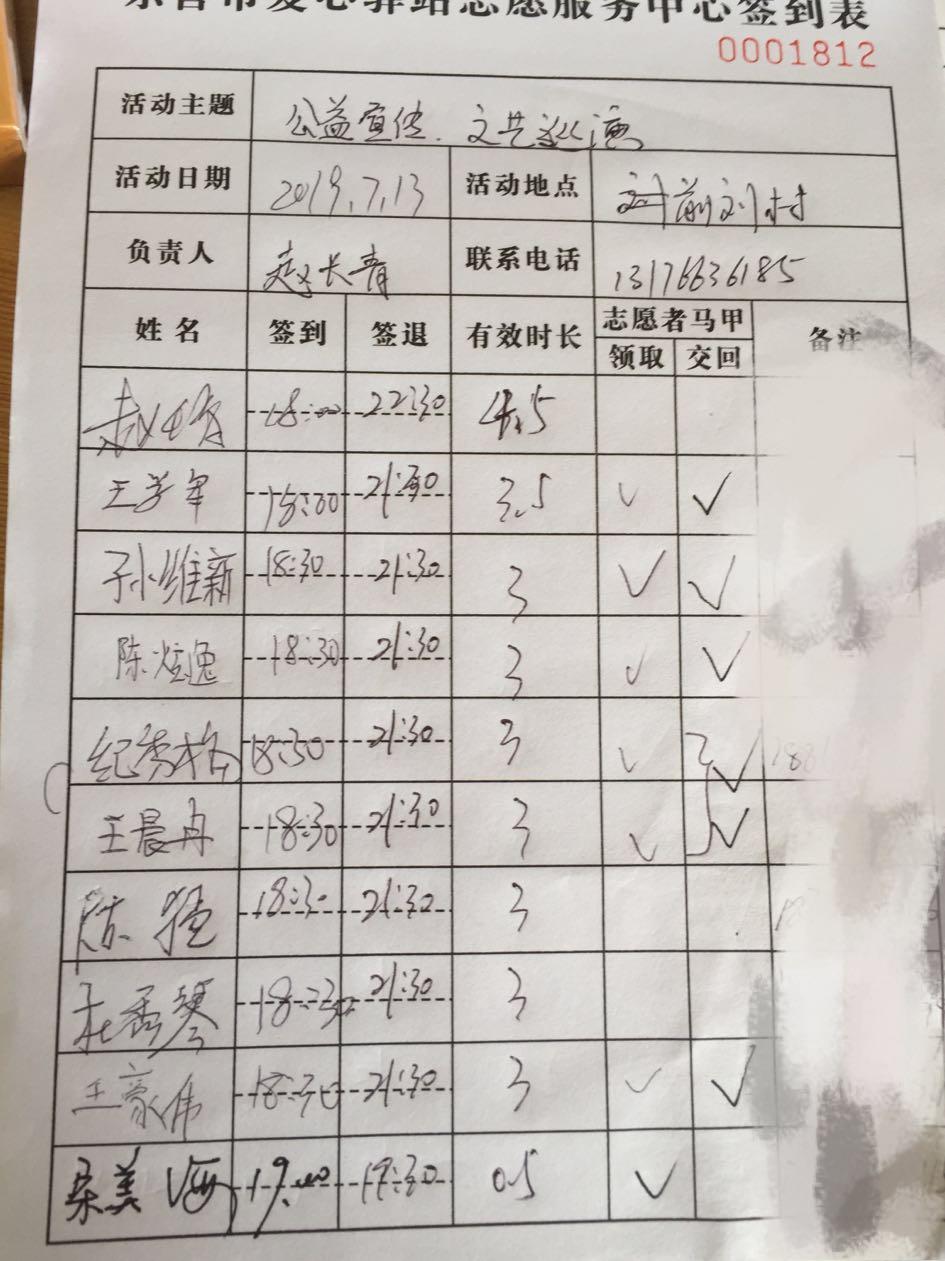 市爱心驿站志愿服务中心签到表
0001812
活动主题 公益宣传.文艺巡演
活动日期 2019.7.13 活动地点 前刘村
负责人 赵长青 联系电话 13176636185
姓名 签到 签退 有效时长 志愿者马甲 备注
领取 交回
18:00 22:30 4.5
王学军 18:00 21:30 3.5 ✓ ✓
孙维新 18:30 21:30 3 ✓ ✓
陈炫逸 18:30 21:30 3 ✓ ✓
纪秀格 18:30 21:30 3 ✓ ✓
王晨冉 18:30 21:30 3 ✓ ✓
陈 18:30 21:30 3
杜秀琴 18:30 21:30 3
王豪伟 18:30 21:30 3 ✓ ✓
桑美 19:00 19:30 0.5 ✓